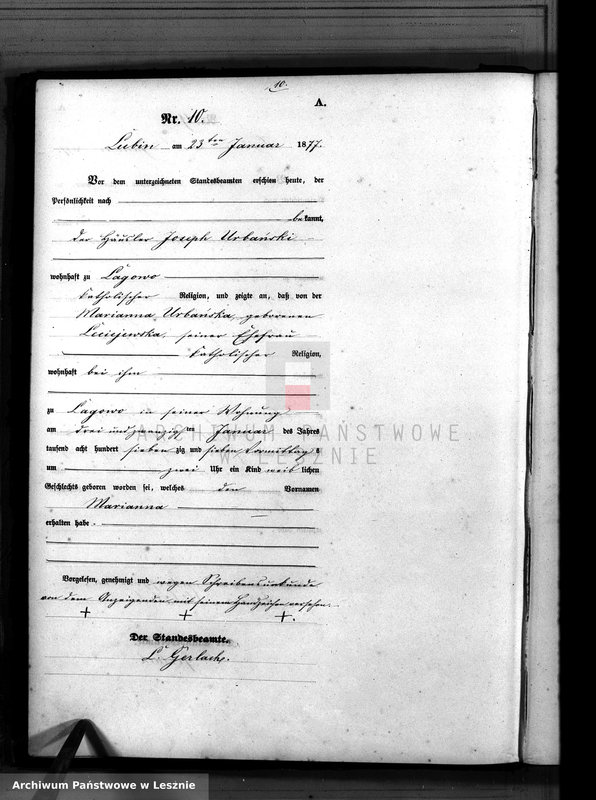 10.
A.
Nr. 10.
Lubin am 23ten Januar 1877.
Vor dem unterzeichneten Standesbeamten erschien heute, der
Persönlichkeit nach
bekannt,
der Häusler Joseph Urbański
wohnhaft zu Łagowo
katholischer Religion, und zeigte an, daß von der
Marianna Urbańska, geborenen
seiner Ehefrau
katholischer Religion,
wohnhaft bei ihm
zu Łagowo in seiner Wohnung
am drei und zwanzigsten Januar des Jahres
tausend acht hundert siebenzig und sieben Vormittags
um zwei Uhr ein Kind weiblichen
Geschlechts geboren worden sei, welches den Vornamen
Marianna
erhalten habe.
Vorgelesen, genehmigt und wegen Schreibensunkunde
von dem Anzeigenden mit seinem Handzeichen versehen.
+ + +.
Der Standesbeamte.
L. Gerlach.
ARCHIWUM PAŃSTWOWE
W LESZNIE
Archiwum Państwowe w Lesznie